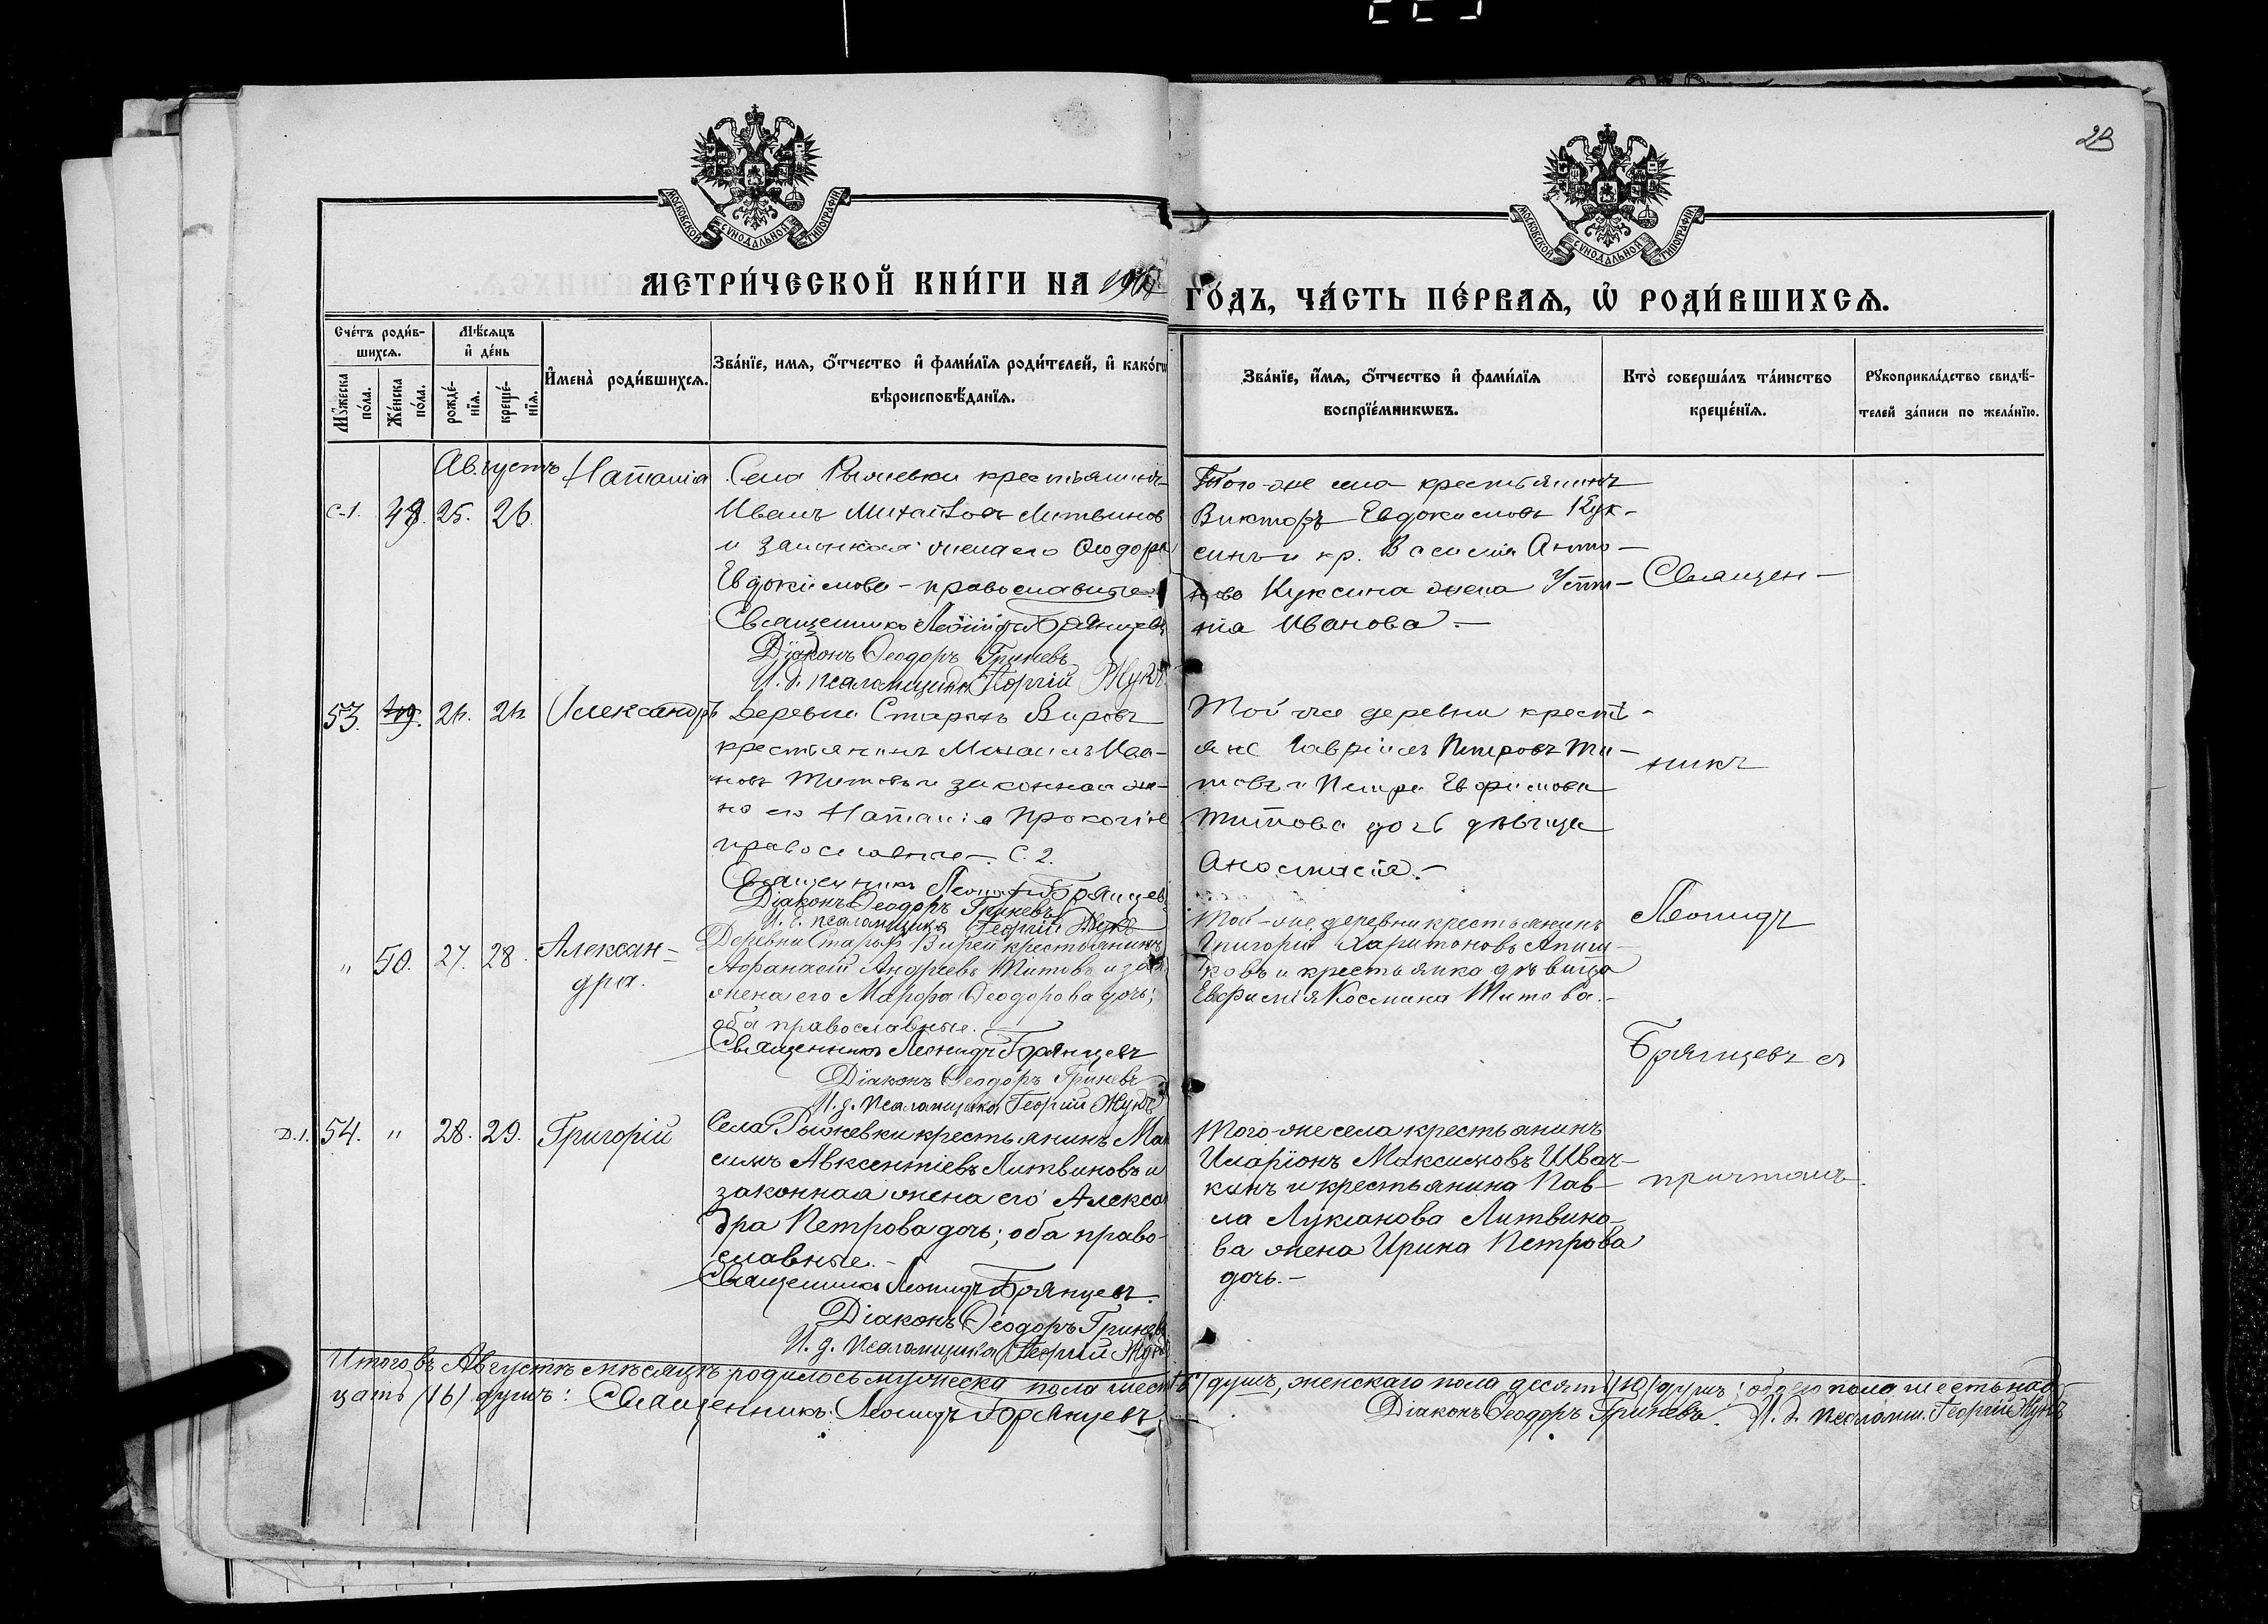 23
МОСКОВСКОЙ СѴНОДАЛЬНОЙ ТИПОГРАФІИ
МОСКОВСКОЙ СѴНОДАЛЬНОЙ ТИПОГРАФІИ
МЕТРИ́ЧЕСКОЙ КНИ́ГИ НА
ГО́ДЪ, ЧА́СТЬ ПЕ́РВАѦ, Ѡ҆ РОДИ́ВШИХСѦ.
Сче́тъ роди́в-
шихсѧ.
Мѣ́сѧцъ
и҆ де́нь
Мꙋ́жеска
по́ла.
Же́нска
по́ла.
рожде́-
нїѧ.
креще́-
нїѧ.
И҆мена̀ роди́вшихсѧ.
Зва́нїе, имѧ, ѻ҆́тчество и҆ фами́лїѧ роди́телей, и҆ како́гѡ
вѣроисповѣ́данїѧ.
Зва́нїе, и҆́мѧ, ѻ҆́тчество и҆ фами́лїѧ
воспрїе́мникѡвъ.
Кто̀ соверша́лъ та́инство
креще́нїѧ.
Рꙋкоприкла́дство свидѣ́-
телей за́писи по жела́нїю.
Августъ
С-1. 25. 26.
Наталія
Села Рыжевки крестьянинъ
Иванъ Михайловъ Литвинов
и законная жена его Ѳеодора
Евдокимова - православные.
Священникъ Леонидъ Брянцевъ
Діаконъ Ѳеодоръ Гриневъ
И. д. псаломщика Георгій Жукъ
Того-же села крестьянинъ
Викторъ Евдокимовъ Кук-
синъ и кр. Василія Анто-
нова Куксина жена Усти-
нія Иванова.-
53. 49.
Александръ
Деревни Старыхъ Вировъ
крестьянинъ Михаилъ Ива-
новъ Титовъ и законная же-
на его Наталія Прокопіева
православные - С. 2.
Священникъ Леонидъ Брянцев
Діаконъ Ѳеодоръ Гриневъ
И. д. псаломщика Георгій Жукъ
Той же деревни кресть-
яне Гавріилъ Петровъ Ти-
товъ и Петра Евфимова
Титова дочь дѣвица
Анастасія.-
" 50. 27. 28.
Алексан-
дра.
Деревни Старыхъ Вирей крестьянинъ
Аѳанасій Андреевъ Титовъ и зак.
жена его Марѳа Ѳеодорова дочь;
оба православные.
Священникъ Леонидъ Брянцевъ
Діаконъ Ѳеодоръ Гриневъ
И. д. псаломщика Георгій Жукъ
Той-же деревни крестьянинъ
Григорій Харитоновъ
и крестьянка дѣвица
Евфимія Космина Титова.-
Д. 1. 54. " 28. 29.
Григорій
Села Рыжевки крестьянинъ Мак
симъ Авксентіевъ Литвиновъ и
законная жена его Алексан
дра Петрова дочь; оба право-
славные.-
Священникъ Леонидъ Брянцевъ.
Діаконъ Ѳеодоръ Гриневъ
И. д. псаломщика Георгій Жукъ
Того-же села крестьянинъ
Иларіонъ Максимовъ Швач-
кинъ и крестьянина Пав-
ла Лукіанова Литвино-
ва жена Ирина Петрова
дочь.-
Священ-
никъ
Леонидъ
Брянцевъ съ
причтомъ.
Итого въ Августѣ мѣсяцѣ родилось мужеска пола шесть /6/ душъ, женскаго пола десять /10/ душъ; обоего пола шестьнад-
цать /16/ душъ: Священникъ Леонидъ Брянцевъ. Діаконъ Ѳеодоръ Гриневъ. И. д. псаломщ. Георгій Жукъ